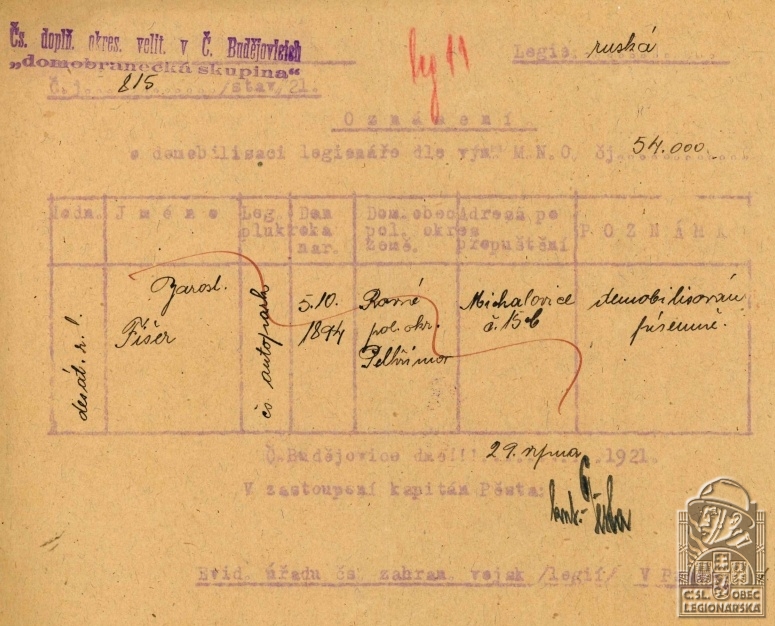 Čs. doplň. okres. velit. v Č. Budějovicích
„domobranecká skupina“
Legie: ruská
Č.j. 815 /stav. 21.
Oznámení
o demobilisaci legionáře dle výn. M.N.O. čj. 54.000.
Hodn. Jméno Leg. pluk Den roka nar. Dom.obec pol. okres Země. Adresa po propuštění POZNÁMKA
desát. Jarosl. Fišer čs autopark 5.10. 1894 Ravné pol. okr. Pelhřimov Michalovice č. 15 demobilisován písemně.
Č.Budějovice dne 29. srpna 1921.
V zastoupení kapitán Pěsta:
Evid. úřadu čs. zahran. vojsk /legií/ V
ČSL. OBEC
LEGIONÁŘSKÁ